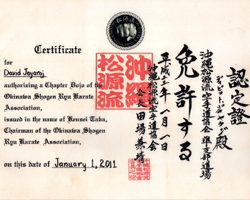 Certificate
for
David Jayaraj
authorising a Chapter Dojo of the
Okinawa Shogen Ryu Karate
Association,
issued in the name of Kensei Taba,
Chairman of the Okinawa Shogen
Ryu Karate Association,
on this date of January 1, 2011
認定證
殿
沖縄松源流空手道協会
道場
免許する
平成 年 月 日
沖縄松源流空手道協会
会長 田場兼靖
沖縄
松源流